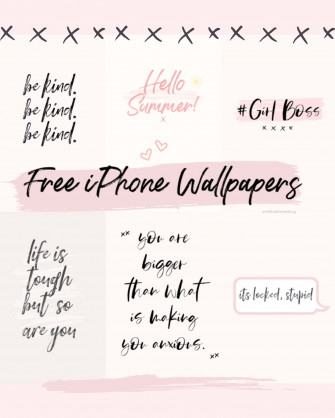 be kind.
be kind.
be kind.
Hello
Summer!
x
#Girl Boss
x x x x
Free iPhone Wallpapers
life is
tough
but so
are you
you are
bigger
than what
is making
you anxious.
its locked, stupid